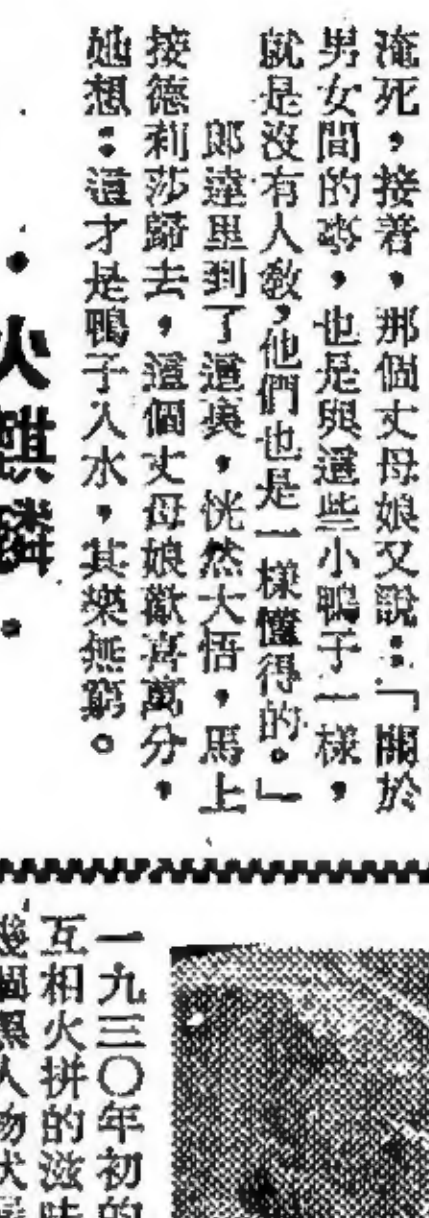 淹死，接着，那個丈母娘又說：「關於
男女間的事，也是與這些小鴨子一樣，
就是沒有人敎，他們也是一樣懂得的。」
郎達里到了這裏，恍然大悟，馬上
接德莉莎歸去，這個丈母娘歡喜萬分，
她想：這才是鴨子入水，其樂無窮。
·火麒麟·
一九三〇年初的
互相火拼的滋味
幾個黑人物